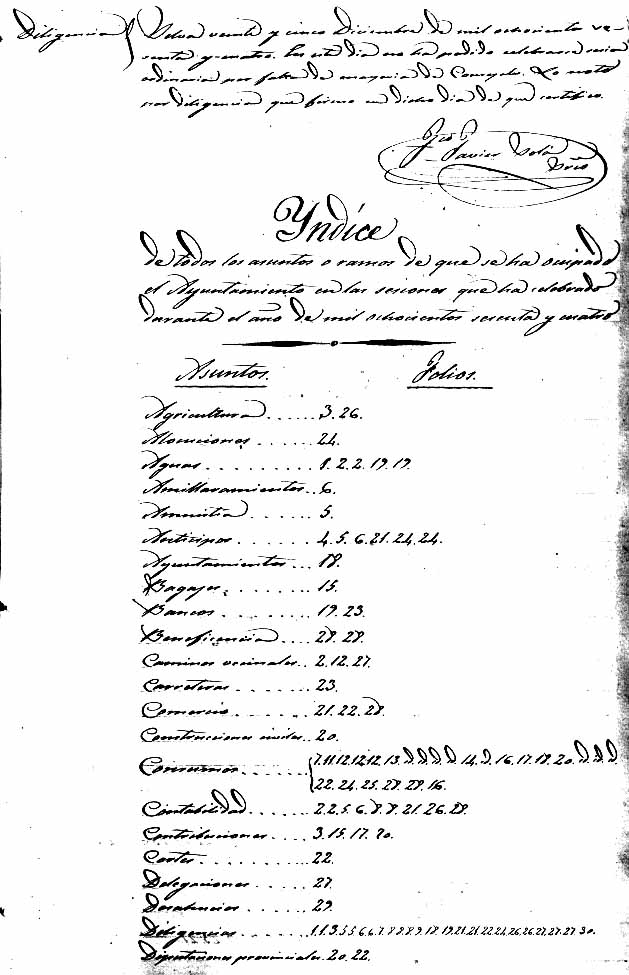 Diligencia
Selva veinte y cinco Diciembre de mil ochocientos se-
senta y cuatro. En este dia no ha podido celebrarse sesion
ordinaria por falta de mayoria de Concejales. Lo noto
por diligencia que firmo en dicho dia de que certifico.
Javier Solá
Srio
Yndíce
de todos los asuntos o ramos de que se ha ocupado
el Ayuntamiento en las sesiones que ha celebrado
durante el año de mil ochocientos sesenta y cuatro
Asuntos. Folios.
Agricultura ...... 3. 26.
Alocuciones ...... 24.
Aguas ......... 1. 2. 2. 19. 19.
Amillaramientos .. 6.
Amnistia ....... 5.
Anticipos ....... 4. 5. 6. 21. 24. 24.
Ayuntamientos ... 18.
Bagajes ........ 15.
Bancos ........ 19. 23.
Beneficencia .... 28. 28.
Caminos vecinales .. 2. 12. 27.
Carreteras ....... 23.
Comercio ....... 21. 22. 28.
Construcciones civiles .. 20.
Consumos ..... 7. 11. 12. 12. 12. 13. d. d. d. d. 14. d. 16. 17. 18. 20. d. d. d.
22. 24. 25. 28. 28. 16.
Contabilidad ...... 2. 2. 5. 6. 8. 8. 21. 26. 28.
Contribuciones .... 3. 15. 17. 20.
Cortes .......... 22.
Delegaciones ..... 27.
Desahucios ...... 29.
Diligencias ....... 1. 1. 3. 5. 5. 6. 6. 7. 8. 8. 8. 9. 12. 19. 21. 21. 22. 24. 26. 26. 27. 27. 27. 30.
Diputaciones provinciales. 20. 22.